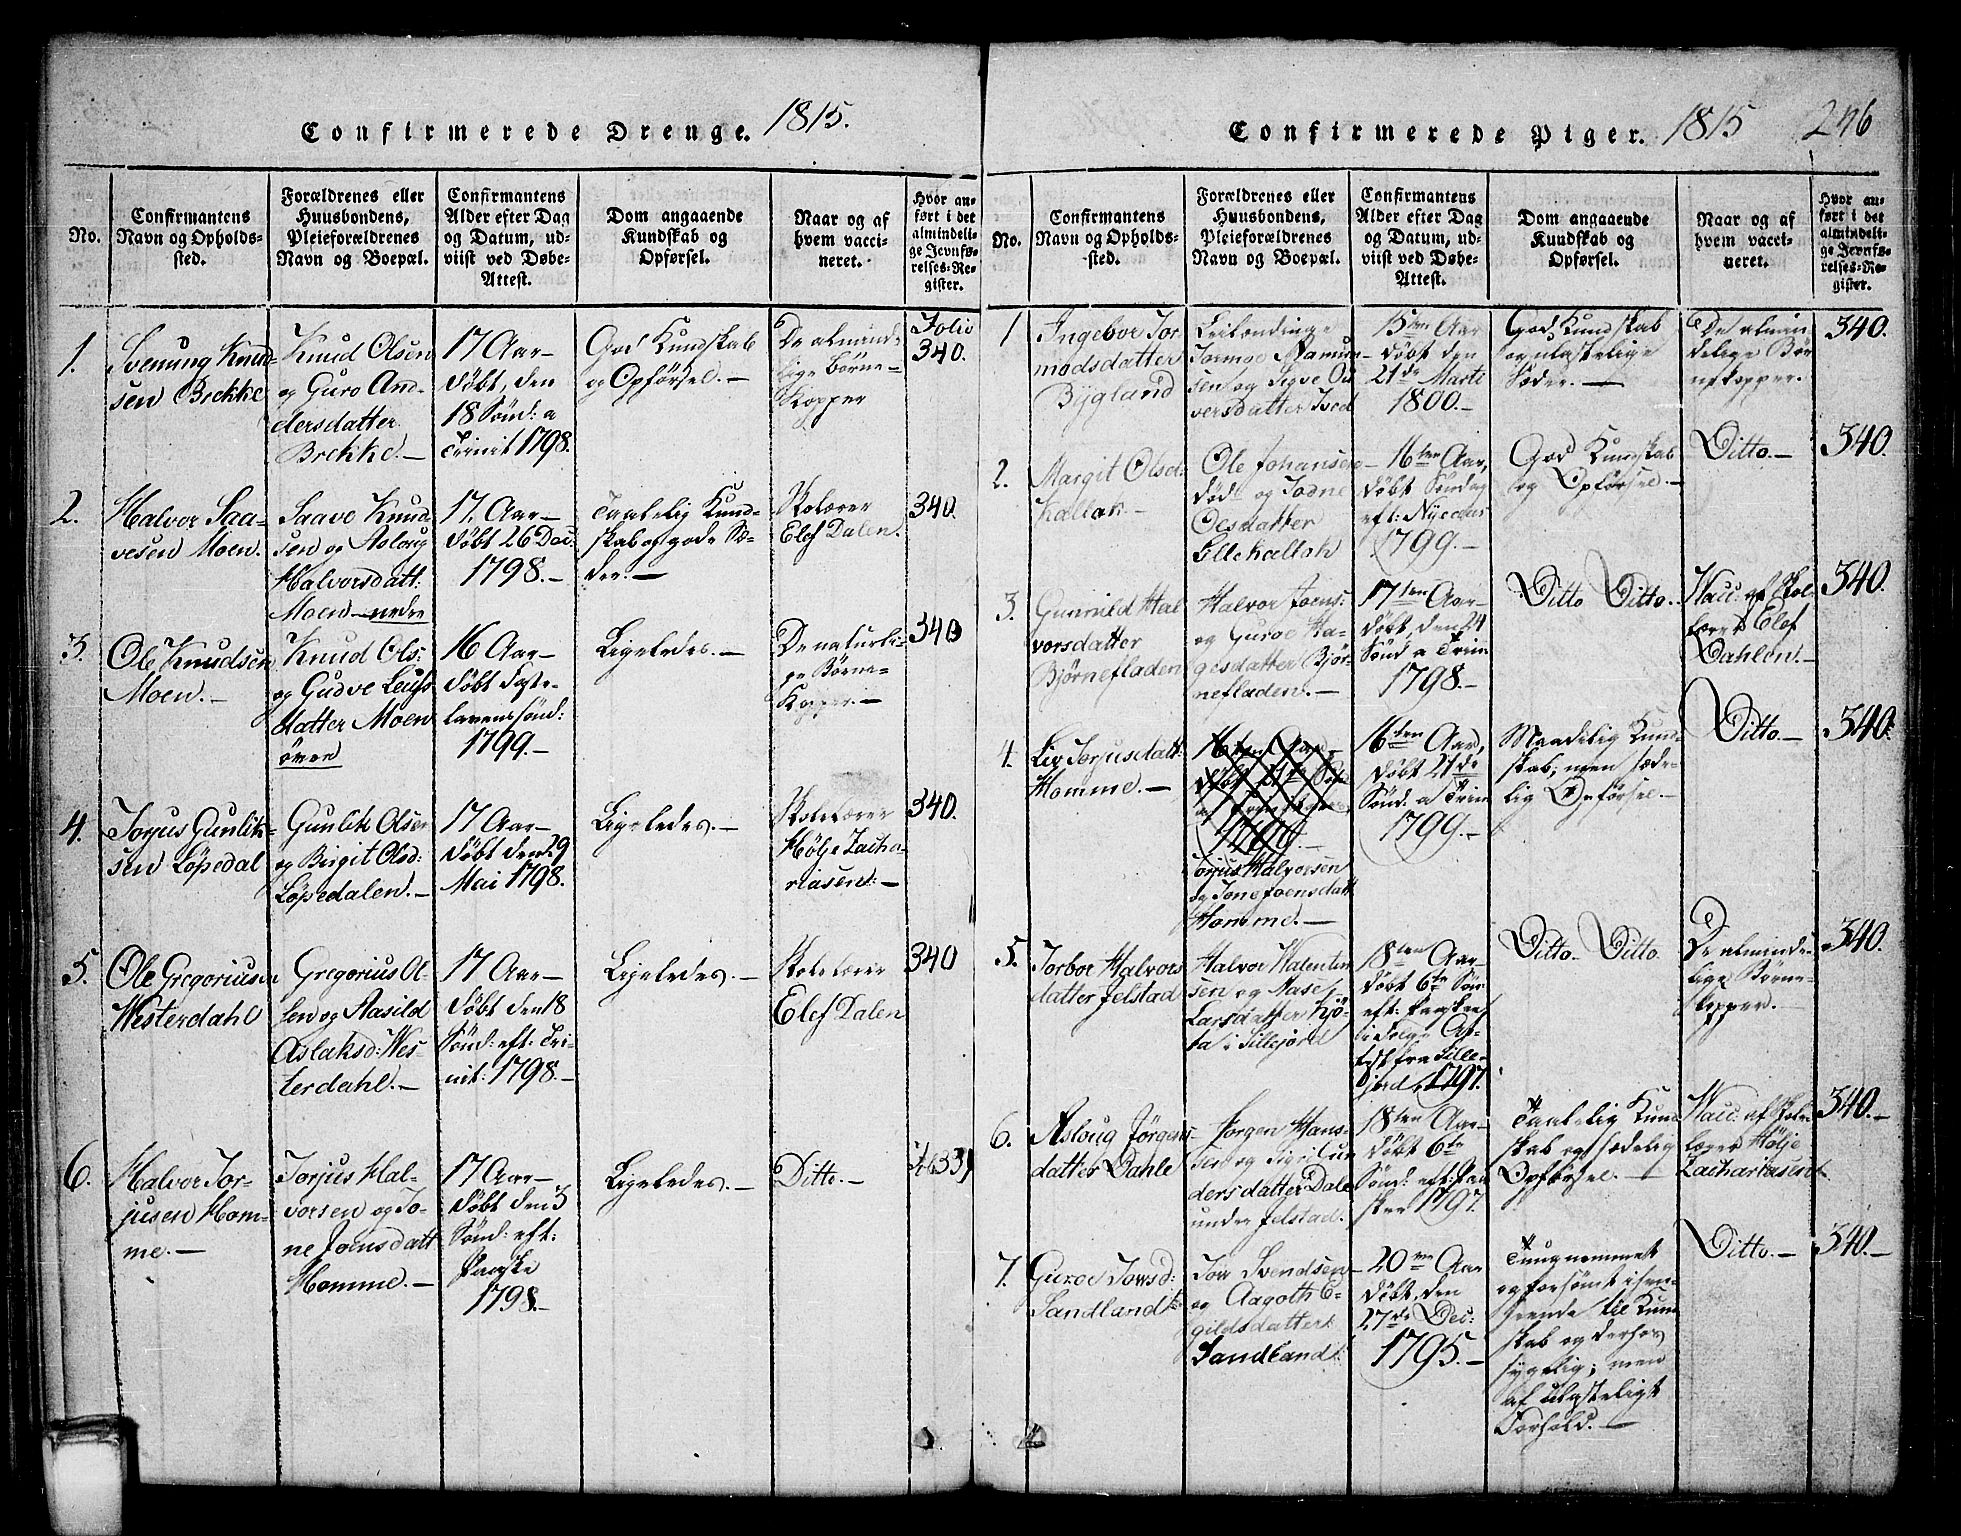 Confirmerede Drenge. 1815.
No.
Confirmantens
Navn og Opholds-
sted.
Forældrenes eller
Huusbondens,
Pleieforældrenes
Navn og Boepæl.
Confirmantens
Alder efter Dag
og Datum, ud-
viist ved Døbe-
Attest.
Dom angaaende
Kundskab og
Opførsel.
Naar og af
hvem vacci-
neret.
Hvor an-
ført i det
almindeli-
ge Jevnfø-
relses-Re-
gister.
1.
Svenung Knud-
sen Brekke
Knud Olsen
og Guro An-
dersdatter
Brekke.-
17 Aar-
Døbt, den
18 Sönd: a
Trinit 1798.
God Kundskab
og Opførsel.-
De almind-
lige Børne-
Kopper
Folio
340.
2.
Halvor Saa-
vesen Moen.
Saave Knud
sen og Aaloug
Halvorsdatt:
Moen nedre
17. Aar-
Døbt 26 Dec:
1798.-
Taalelig Kund-
skab og gode Sæ-
der.-
Skolelærer
Elef Dalen.
340.
3.
Ole Knudsen
Moen.-
Knud Ols:
og Gudve Leifs
datter Moen
övre
16 Aar-
Døbt Faste-
lavenssönd:
1799.-
Ligeledes.-
De naturli-
ge Børne-
Kopper.-
340
4.
Torjus Gunlik-
sen Löpedal
Gunlik Olsen
og Birgit Olsd:
Löpedalen.-
17 Aar-
Døbt den 29
Mai 1798.
Ligeledes.-
Skolelærer
Hølje Zacha-
riasen:-
340.
5.
Ole Gregoriusen
Westerdahl
Gregorius Ol-
sen og Aasild
Aslaksd: Wes-
terdahl.-
17 Aar-
Døbt den 18
Sönd: eft: Tri-
nit: 1798.-
Ligeledes.-
Skolelærer
Elef Dalen
340
6.
Halvor Tor-
jusen Hom-
me.-
Torjus Hal-
vorsen og To-
ne Joensdatt
Homme.-
17 Aar-
Døbt den 3
Sönd: eft:
Paaske
1798.-
Ligeledes.-
Ditto.-
339
Confirmerede Piger. 1815 246
No.
Confirmantens
Navn og Opholds-
sted.
Forældrenes eller
Huusbondens,
Pleieforældrenes
Navn og Boepæl.
Confirmantens
Alder efter Dag
og Datum, ud-
viist ved Døbe-
Attest.
Dom angaaende
Kundskab og
Opførsel.
Naar og af
hvem vacci-
neret.
Hvor an-
ført i det
almindeli-
ge Jevnfø-
relses-Re-
gister.
1
Ingebor Tor-
modsdatter
Bÿgland
Leilændinge
Tormoe Aamun-
sen og Sigve Ou
versdatter
15ten Aar
Døbt den
21de Marti
1800.-
God Kundskab
og ulastelige
Sæder.-
De almin-
delige Bør
nekopper.
340.
2.
Margit Olsd:
Kallak-
Ole Johansen-
død og
Olesdatter
Lillekallak
16ten Aar,
Døbt Söndag
eft: Nyeaar
1799.-
God Kundskab
og Opførsel.-
Ditto.-
340.
3.
Gunnild Hal
vorsdatter
Bjørnefladen
Halvor Joens:
og Guroe Ha-
gesdatter Bjør-
nefladen.-
17ten Aar-
Døbt, den 24
Sönd a Trin
1798.-
Ditto Ditto.
Vacc: af Skol
lærer Elef
Dahlen.-
340.
4.
Liv Torjusdatt:
Homme.-
Torjus Halvorsen
og Tone Joensdatt
Homme.-
16ten Aar,
Døbt 21de
Sönd: a Trin
1799.-
Maadelig Kund-
skab; men sæde-
lig Opførsel.-
Ditto-
340.
5.
Torbor Halvors
datter Jelstad
Halvor Valentin
sen og Aase
Larsdatter
i Sillejord
18ten Aar-
Døbt 6te Sön
eft: Paaske
ifølge At-
test fra Sille-
jord 1797.
Ditto.- Ditto
De alminde-
lige Børne-
kopper.
340.
6.
Asloug Jørgens-
datter Dahle
Jørgen Hans-
sen og Sigri Gun
dersdatter Dale
under Jelstad.
18ten Aar-
Døbt 6te
Sönd: eft: Paa
sken 1797.
Taalelig Kund
skab og sædelig
Opførsel.-
Vacc: af Skole
lærer Hølje
Zachariasen
340.-
7.
Guroe Torsd:
Sandland
Tor Svendsen-
og Aagoth E-
gildsdatter
Sandland
20ven Aar
Døbt, den
27de Dec:
1795.-
Tungnemmet
og forsömt isen-
seende til Kund
skab og derhos
sygelig; men
af ulasteligt
Forhold.-
Ditto.-
340.-